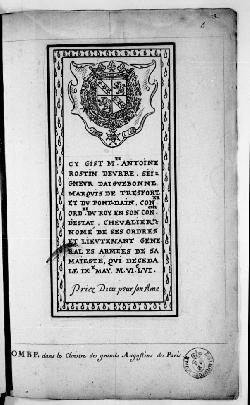 CY GIST M.RE ANTOINE
ROSTIN DEVRRE, SEI-
GNEUR DAIGVEBONNE
MARQUIS DE TRESFORT
ET DV PONT-DAIN, CON.
ORD.RE DV ROY EN SON CON
DESTAT, CHEVALIER
NOMÉ DE SES ORDRES
ET LIEVTENANT GENE
RAL ES ARMÉES DE SA
MAIESTÉ, QVI DECEDA
LE IX MAY. M.VI.LVI.
Priez Dieu pour son Ame
TOMBE, dans le Cloistre des grands Augustins de Paris